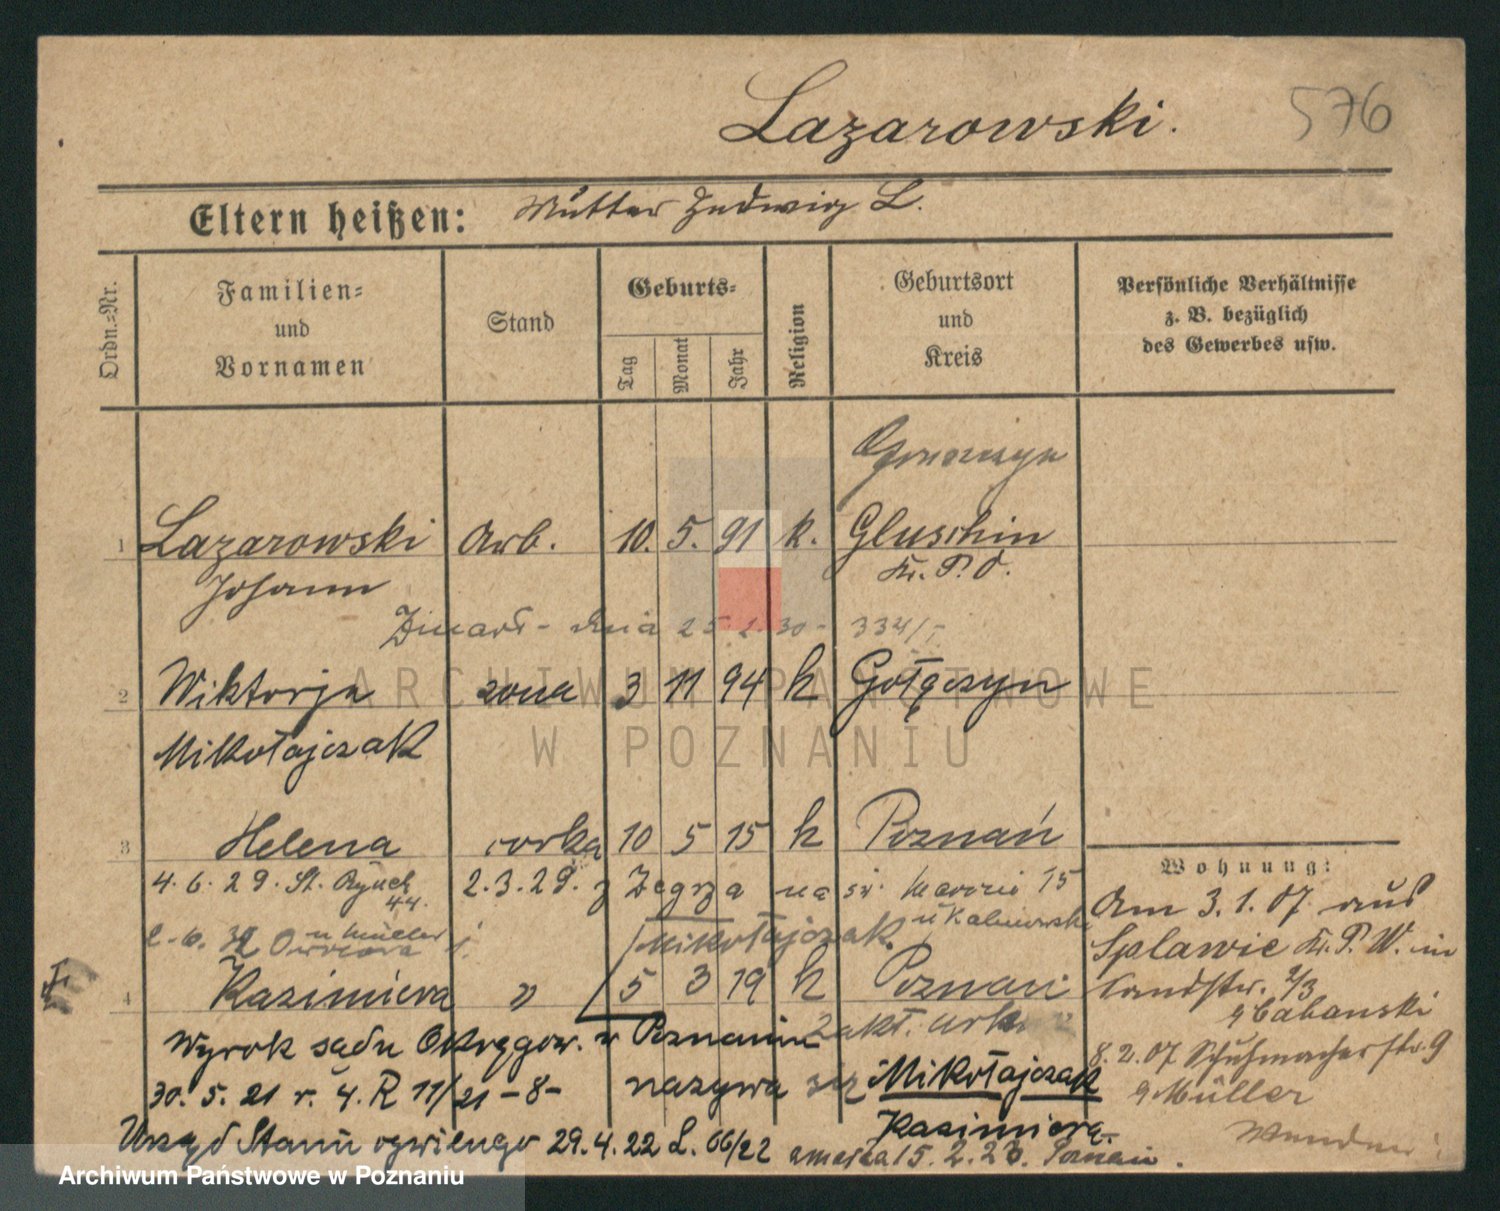 Lazarowski.
576
Eltern heißen: Mutter Hedwig L.
Ordn.=Nr.
Familien= und Vornamen
Stand
Geburts=
Tag
Monat
Jahr
Religion
Geburtsort und Kreis
Persönliche Verhältnisse z. B. bezüglich des Gewerbes usw.
1 Lazarowski Arb. 10. 5. 91 k. Gluschin
Johann Kr. P. O.
Zmarł - dnia 25 1. 30 - 334/
2 Wiktorja zona 3 11 94 k Gołęczyn
Mikołajczak
3 Helena corka 10 5 15 k Poznań
4. 6. 29. St. Rynek 44. 2. 3. 29. z Zegrza na św. 15
u Müller u Kalinowski
Mikołajczak
4 Kazimiera " 5 3 19 k Poznań
z akt. urk.
Wyrok sądu Okręgow. w Poznaniu
30. 5. 21 r. 4. R 11/21 - 8 - nazywa się Mikołajczak
Kazimiera.
Urząd Stanu cywilnego 29. 4. 22 L. 66/22 zmarła 15. 2. 23. Poznań.
Wohnung:
Am 3. 1. 07 aus
Splawie Kr. P. W. in
2/3
b Cabanski
8. 2. 07 Schuhmacherstr. 9
b Müller
ARCHIWUM PAŃSTWOWE
W POZNANIU
Archiwum Państwowe w Poznaniu